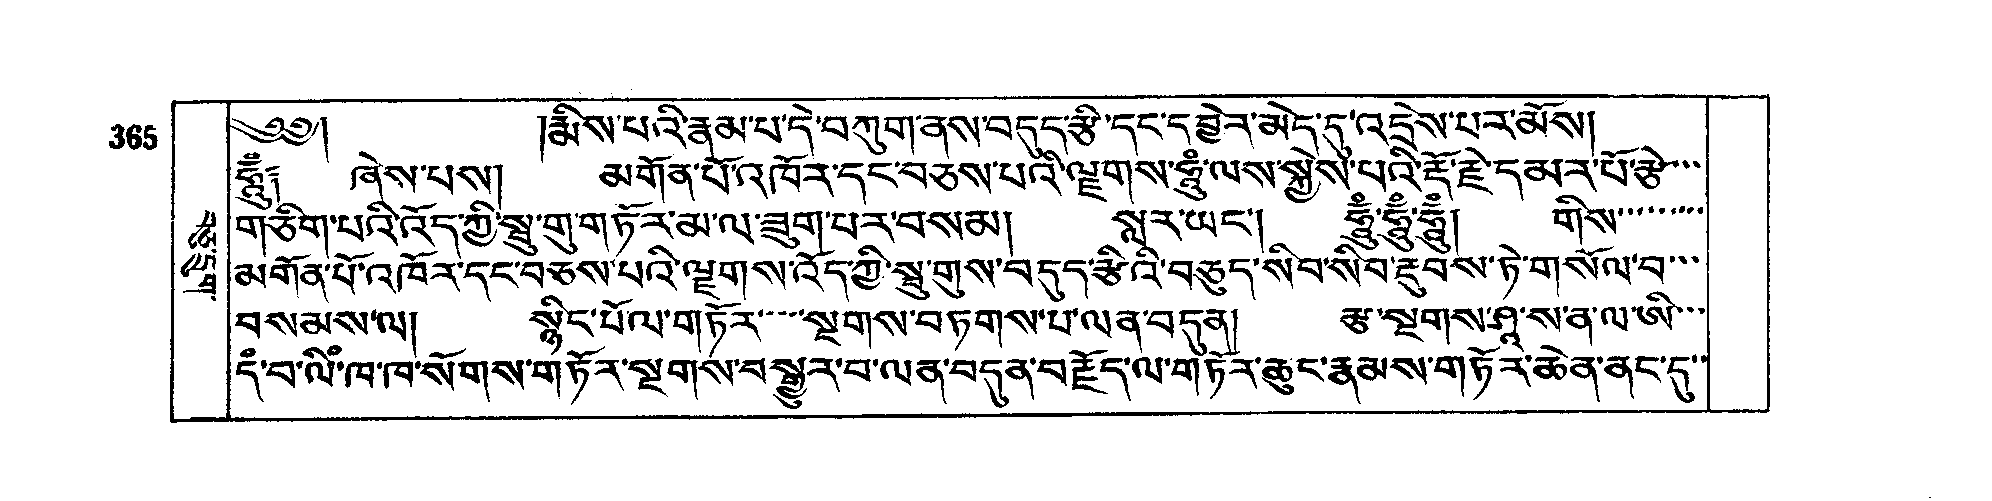 365
༄༅། །རྩིས་པའི་རྣམ་པ་དེ་བཀུག་ནས་བདུད་རྩི་དང་དབྱེར་མེད་དུ་འདྲེས་པར་མོས།
ཧཱུྃ༔ ཞེས་པས། མགོན་པོ་འཁོར་དང་བཅས་པའི་ལྗགས་ཧཱུྃ་ལས་སྐྱེས་པའི་རྡོ་རྗེ་དམར་པོ་རྩེ་
གཅིག་པའི་འོད་ཀྱི་སྦུ་གུ་གཏོར་མ་ལ་ཟུག་པར་བསམ། སླར་ཡང་། ཧཱུྃ་ཧཱུྃ་ཧཱུྃ། གིས་
མགོན་པོ་འཁོར་དང་བཅས་པའི་ལྗགས་འོད་ཀྱི་སྦུ་གུས་བདུད་རྩིའི་བཅུད་སིབ་སིབ་རྔུབས་ཏེ་གསོལ་བ་
བསམས་ལ། སྙིང་པོ་ལ་གཏོར་སྔགས་བཏགས་པ་ལན་བདུན། རྩ་སྔགས་ཤཱ་ས་ན་ལ་ཨི་
དཾ་བ་ལིཾ་ཁ་ཁ་སོགས་གཏོར་སྔགས་བསྒྱུར་བ་ལན་བདུན་བརྗོད་ལ་གཏོར་ཆུང་རྣམས་གཏོར་ཆེན་ནང་དུ་